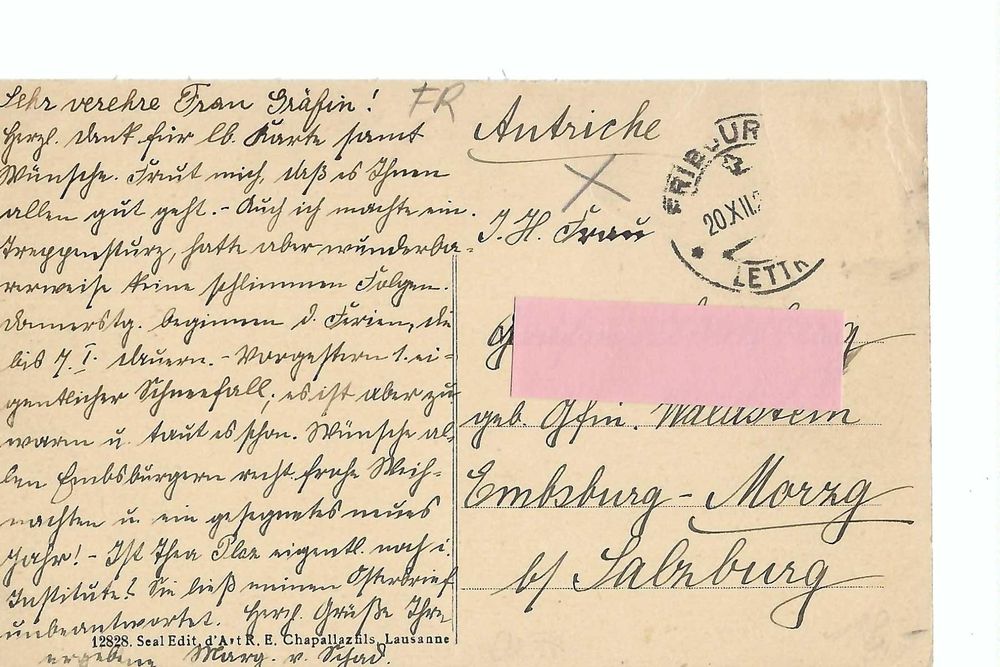 Sehr verehre Frau Gräfin!
Herzl. Dank für lb. Karte samt
Wünsche. Freut mich, daß es Ihnen
allen gut geht. - Auch ich machte ein.
Treppensturz, hatte aber wunderba-
rerweise keine schlimmen Folgen.
Donnerstg. beginnen d. Ferien, die
bis 7. I. dauern. - Vorgestern 1. ei-
gentlicher Schneefall; es ist aber zu
warm u. taut es schon. Wünsche al-
len Embsburgern recht frohe Weih-
nachten u. ein gesegnetes neues
Jahr! - Ist Thea Ilse eigentl. noch i.
Institute? Sie ließ meinen Osterbrief
unbeantwortet. Herzl. Grüße Ihre
ergebene Marg. v. Schad.
12828. Seal Edit. d'Art R. E. Chapallaz fils, Lausanne
FR
Autriche
FRIBOUR
20.XII.
LETTR
I. H. Frau
geb. Gfin. Waldstein
Embsburg - Morzg
b/ Salzburg